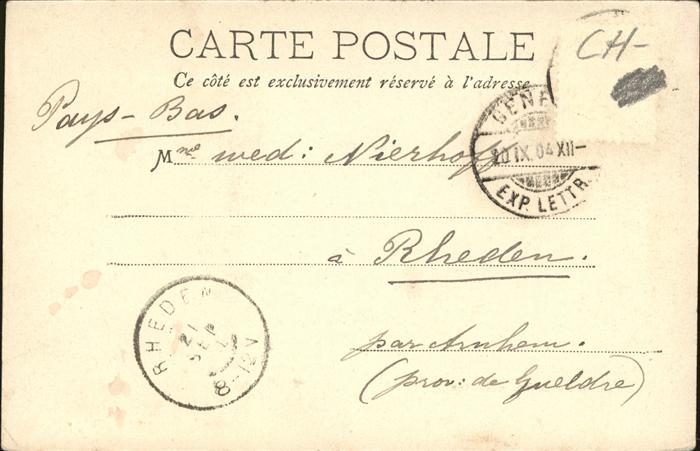 CARTE POSTALE
CH-
Ce côté est exclusivement réservé à l'adresse
Pays-Bas.
GENE
20 IX. 04 XII-
EXP. LETTR.
Mme wed: Nierhoff
à Rheden.
RHEDEN
21 SEP
8-12V
par Arnhem.
(prov: de Gueldre)